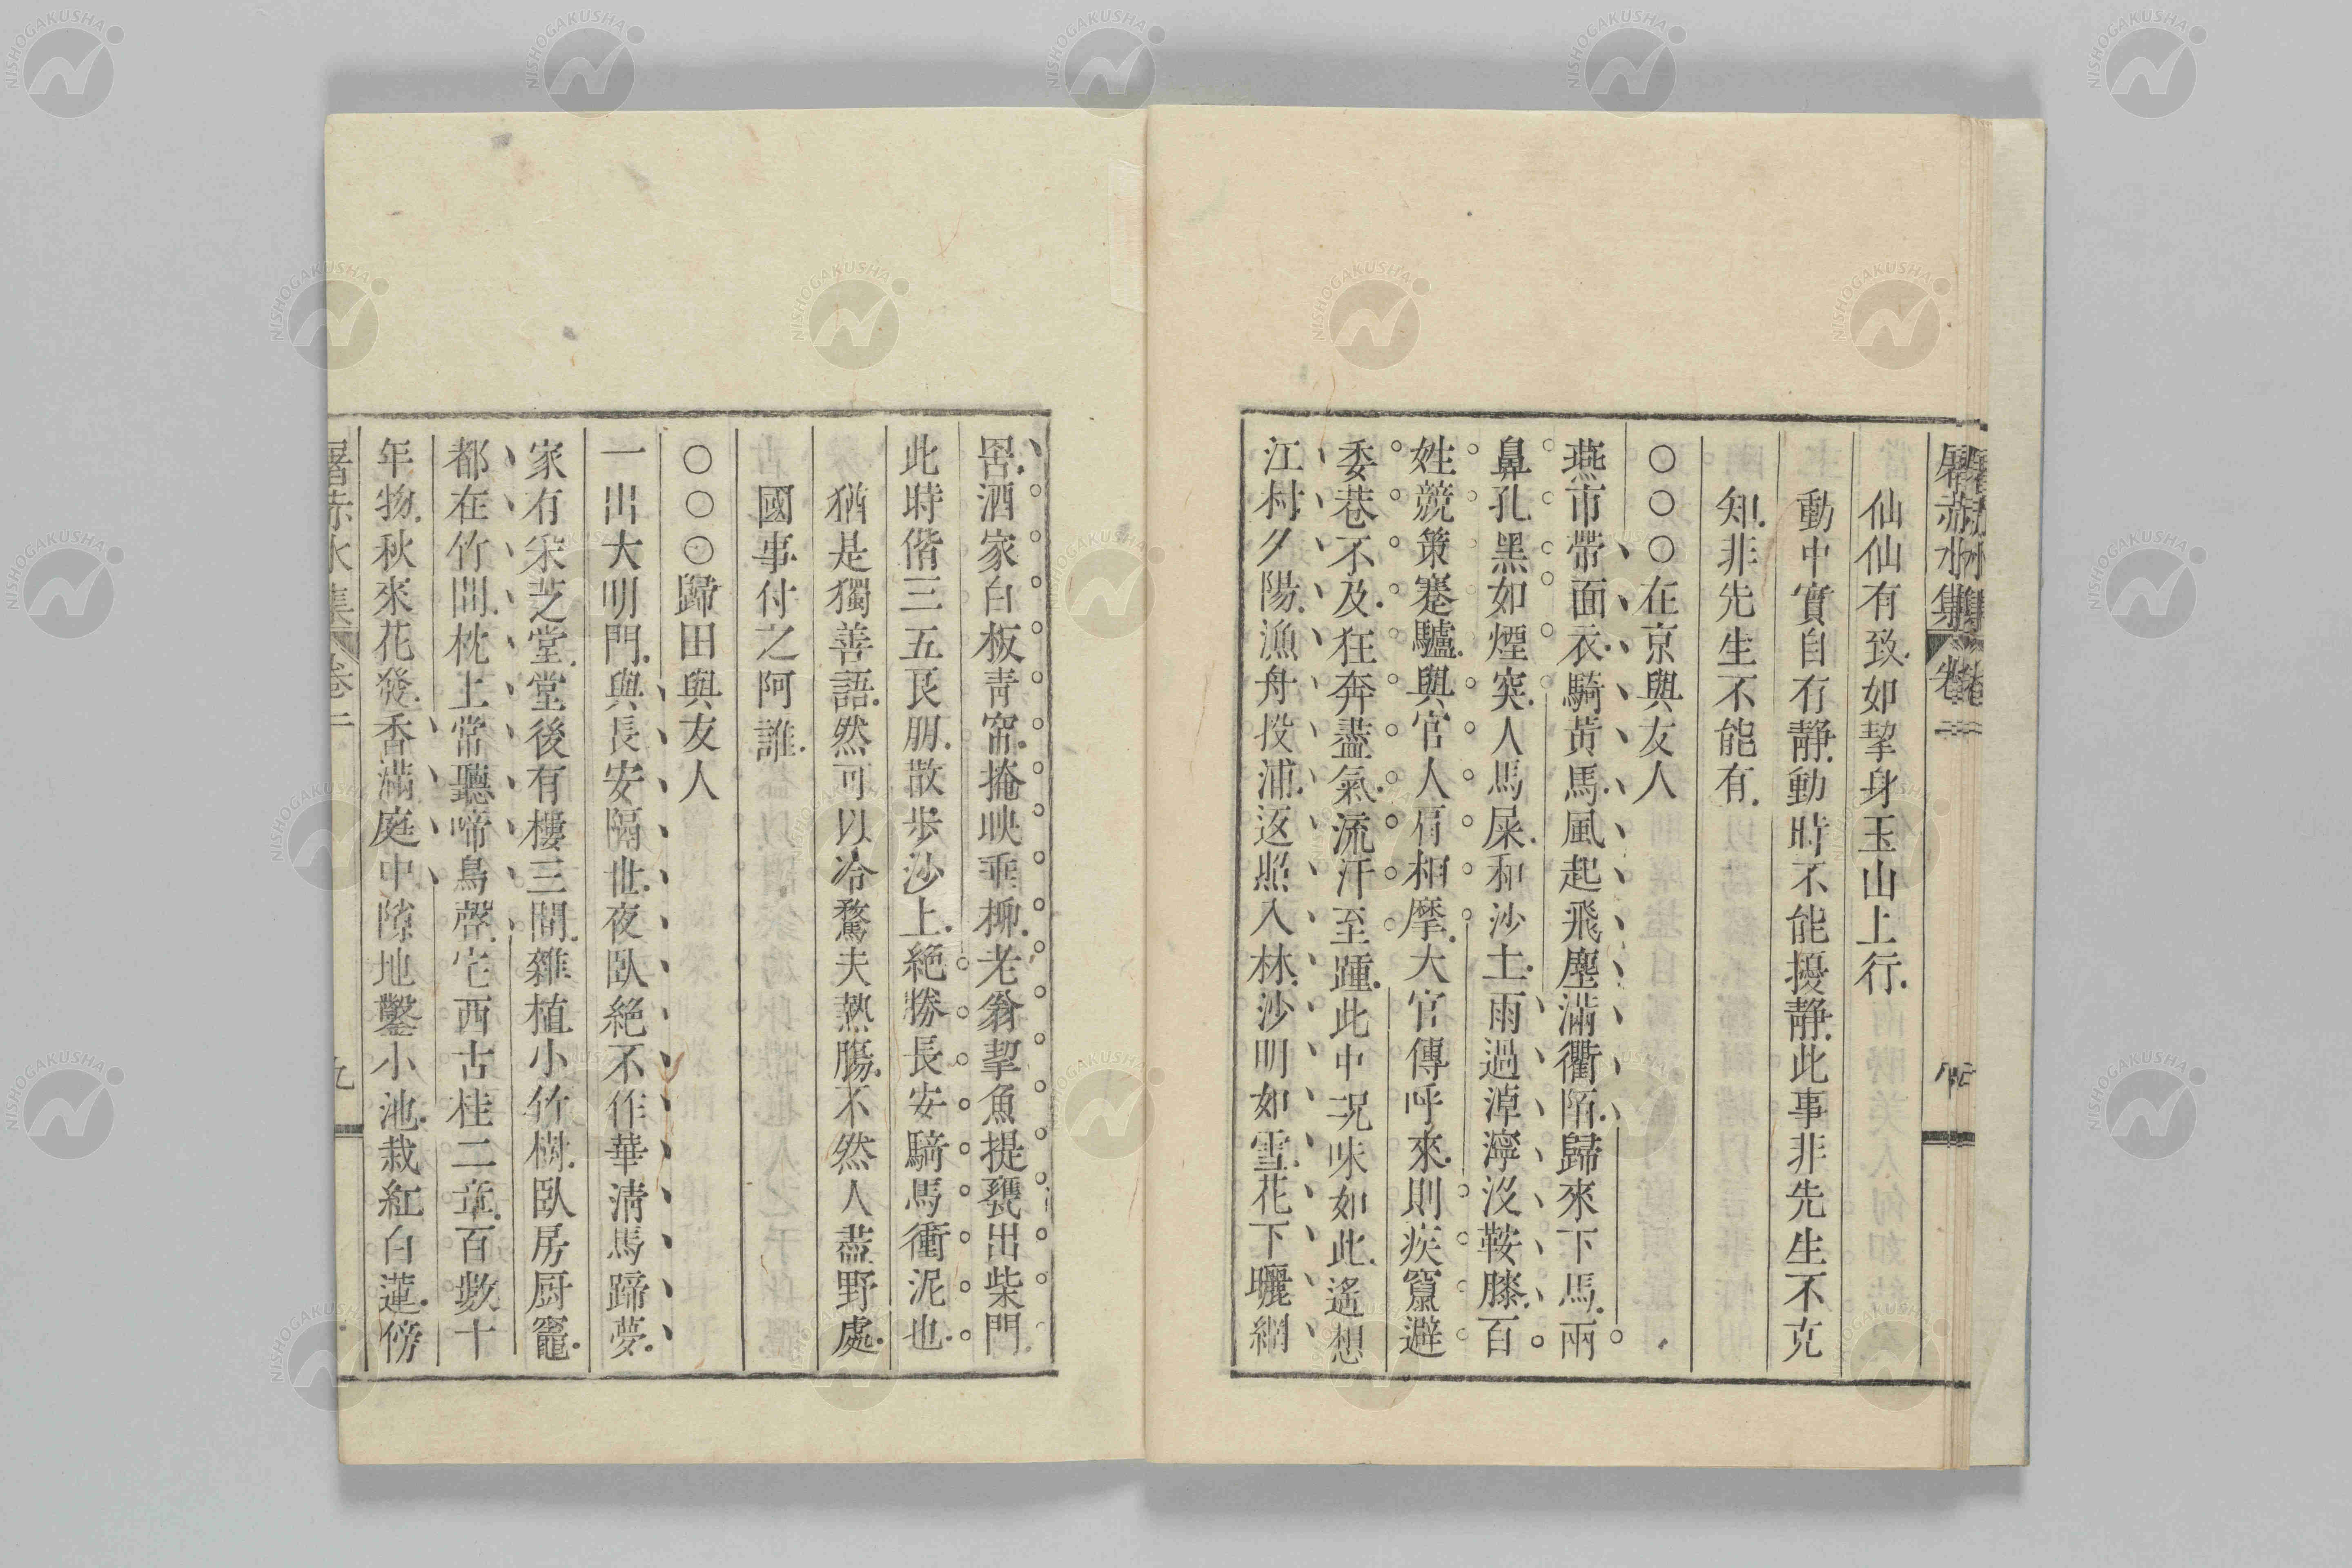 屠赤水集 卷二
仙仙有致如挈身玉山上行
動中實自有静動時不能擾静此事非先生不克
知非先生不能有
○○○在京與友人
燕市帶面衣騎黃馬風起飛塵滿衢陌歸來下馬兩
鼻孔黑如煙突人馬屎和沙土雨過淖濘没鞍膝百
姓競策蹇驢與官人肩相摩大官傳呼來則疾竄避
委巷不及狂奔盡氣流汗至踵此中况味如此遙想
江村夕陽漁舟投浦返照入林沙明如雪花下曬網
罟酒家白板青帘掩映垂柳老翁挈魚提甕出柴門
此時偕三五良朋散步沙上絶勝長安騎馬衝泥也
猶是獨善語然可以冷騖夫熱膓不然人盡野處
國事付之阿誰
○○○歸田與友人
一出大明門與長安隔世夜臥絶不作華清馬蹄夢
家有采芝堂堂後有樓三間雜植小竹樹臥房厨竈
都在竹間枕上常聽啼鳥聲宅西古桂二章百數十
年物秋來花發香滿庭中隙地鑿小池栽紅白蓮傍
屠赤水集 卷二 九
NISHOGAKUSHA